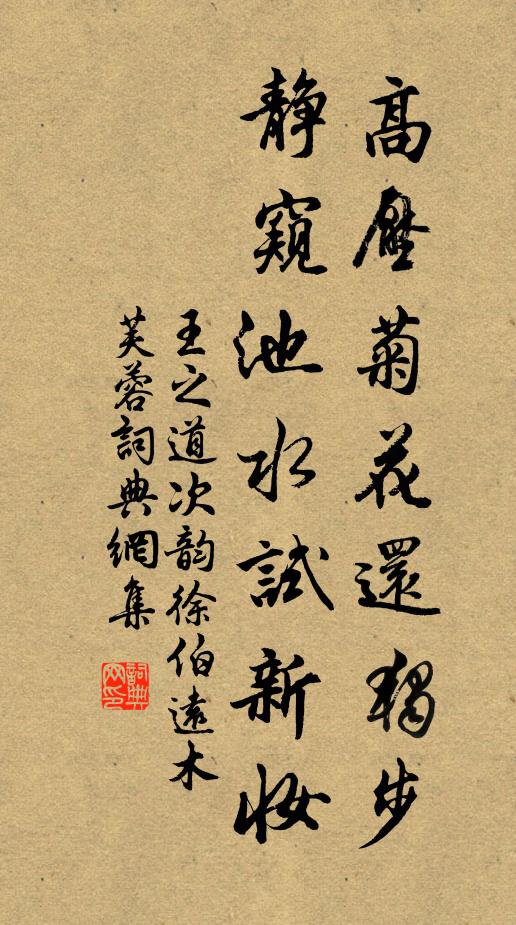 高壓菊花還獨步
靜窺池水試新妝
王之道次韵徐伯遠木
芙蓉詞典網集
詞典網印